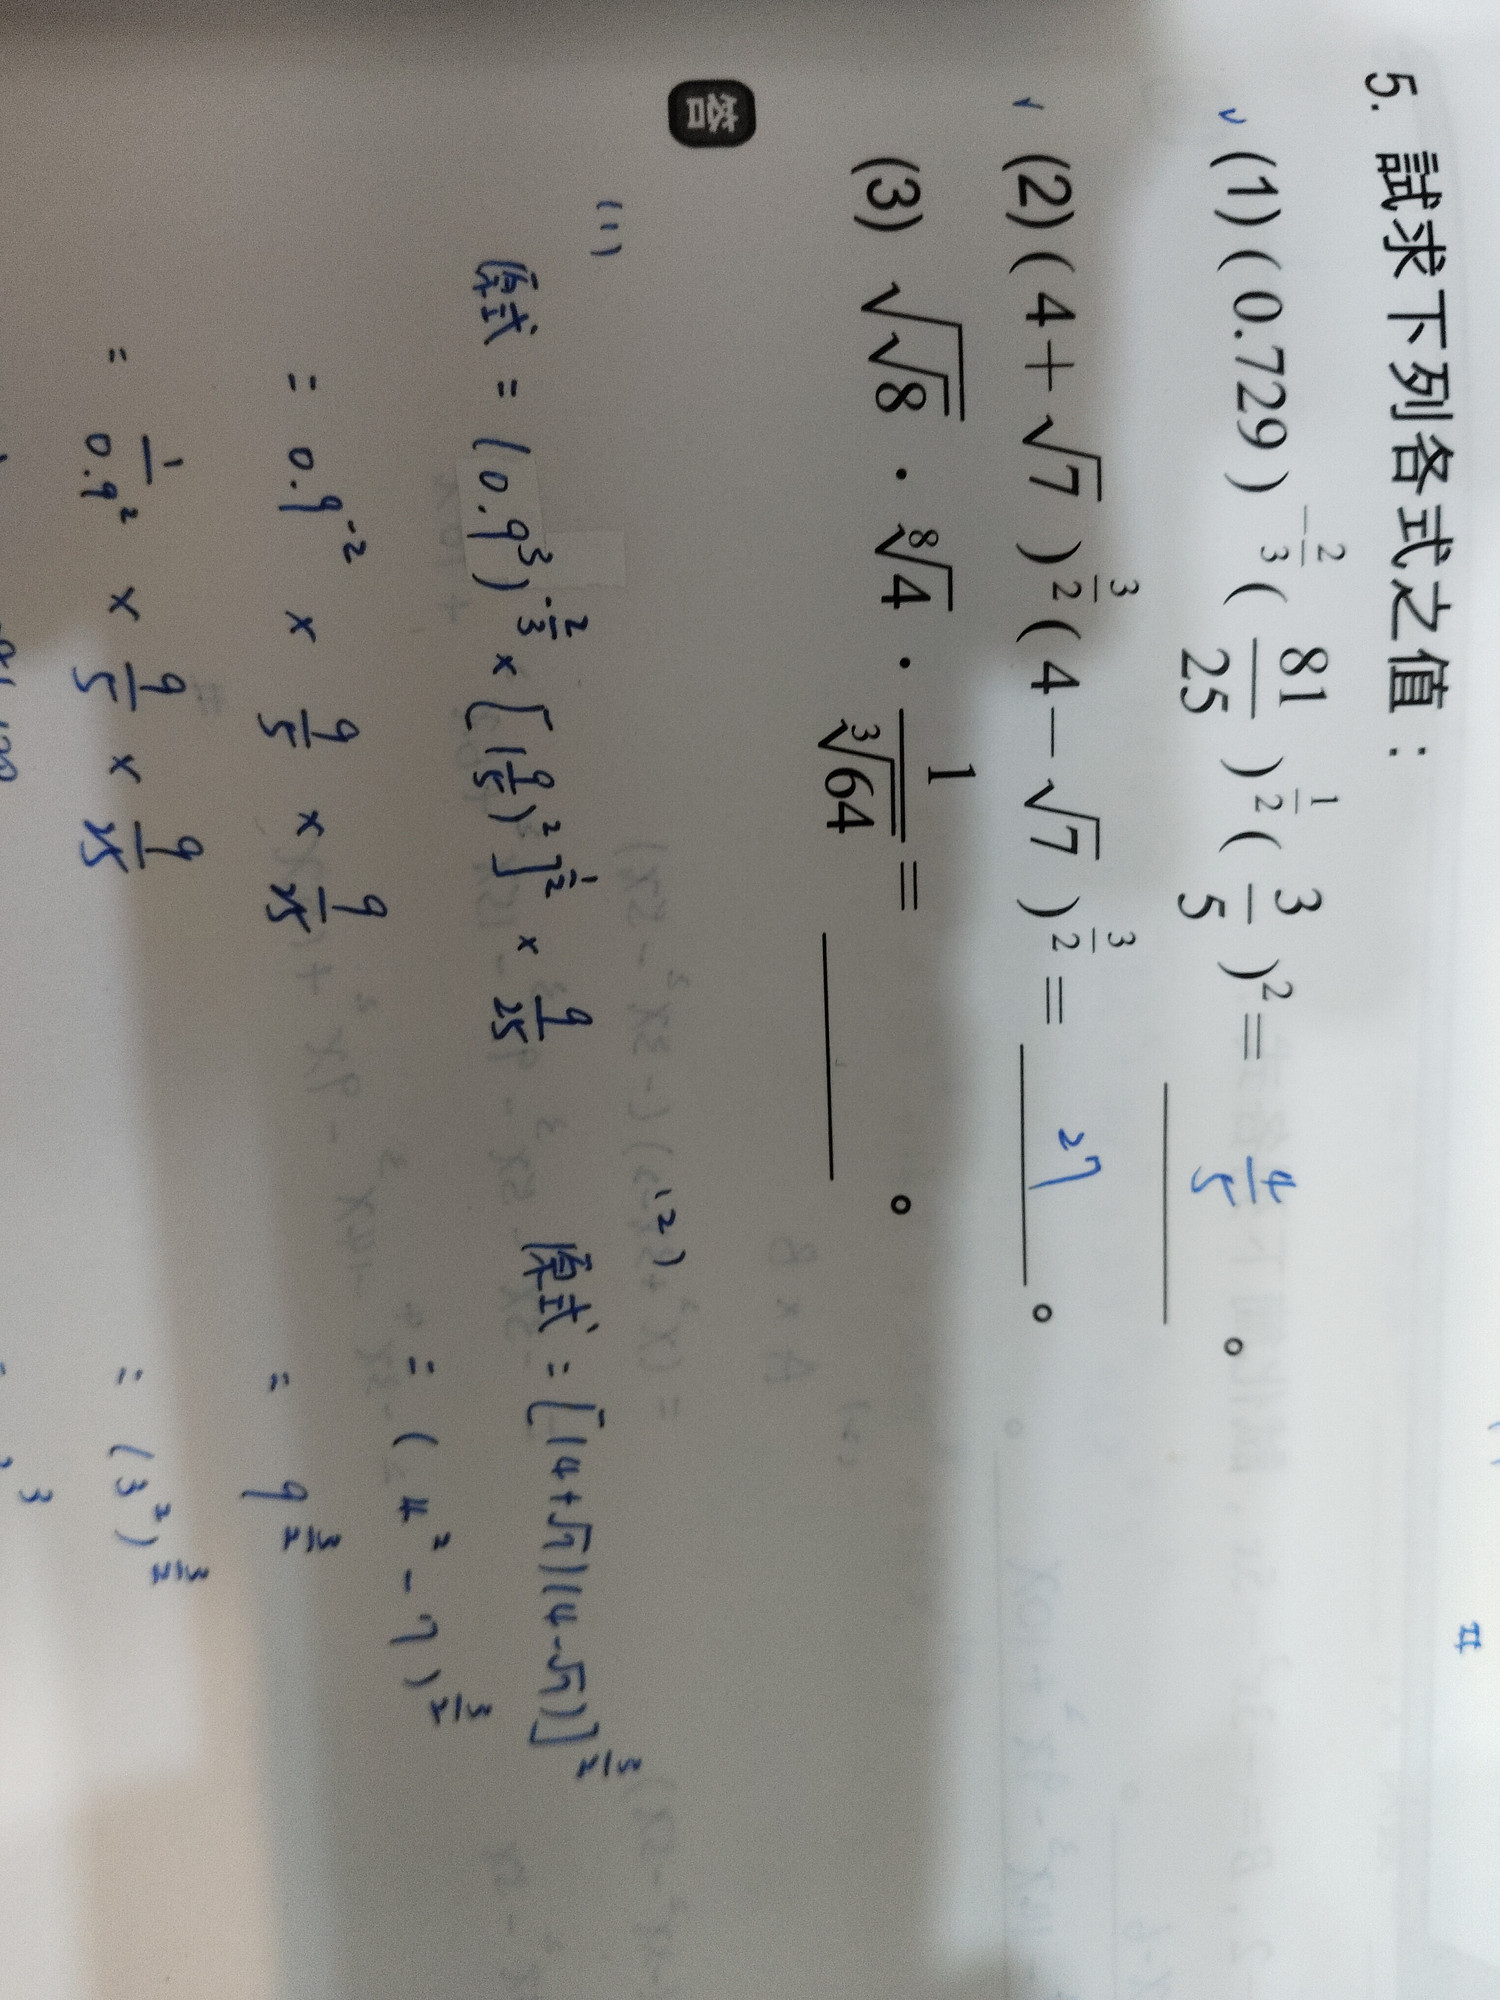 5. 試求下列各式之值：
✓ (1) (0.729)^{-\frac{2}{3}} (\frac{81}{25})^{\frac{1}{2}} (\frac{3}{5})^2 = \frac{4}{5} 。
✓ (2) (4+√7)^{\frac{3}{2}} (4−√7)^{\frac{3}{2}} = 27 。
(3) \sqrt{\sqrt{8}} · \sqrt[8]{4} · \frac{1}{\sqrt[3]{64}} = ______ 。
答
(1)
原式 = (0.9^3)^{-\frac{2}{3}} × [(\frac{9}{5})^2]^{\frac{1}{2}} × \frac{9}{25}
= 0.9^{-2} × \frac{9}{5} × \frac{9}{25}
= \frac{1}{0.9^2} × \frac{9}{5} × \frac{9}{25}
(2)
原式 = [(4+√7)(4-√7)]^{\frac{3}{2}}
= (4^2 - 7)^{\frac{3}{2}}
= 9^{\frac{3}{2}}
= (3^2)^{\frac{3}{2}}